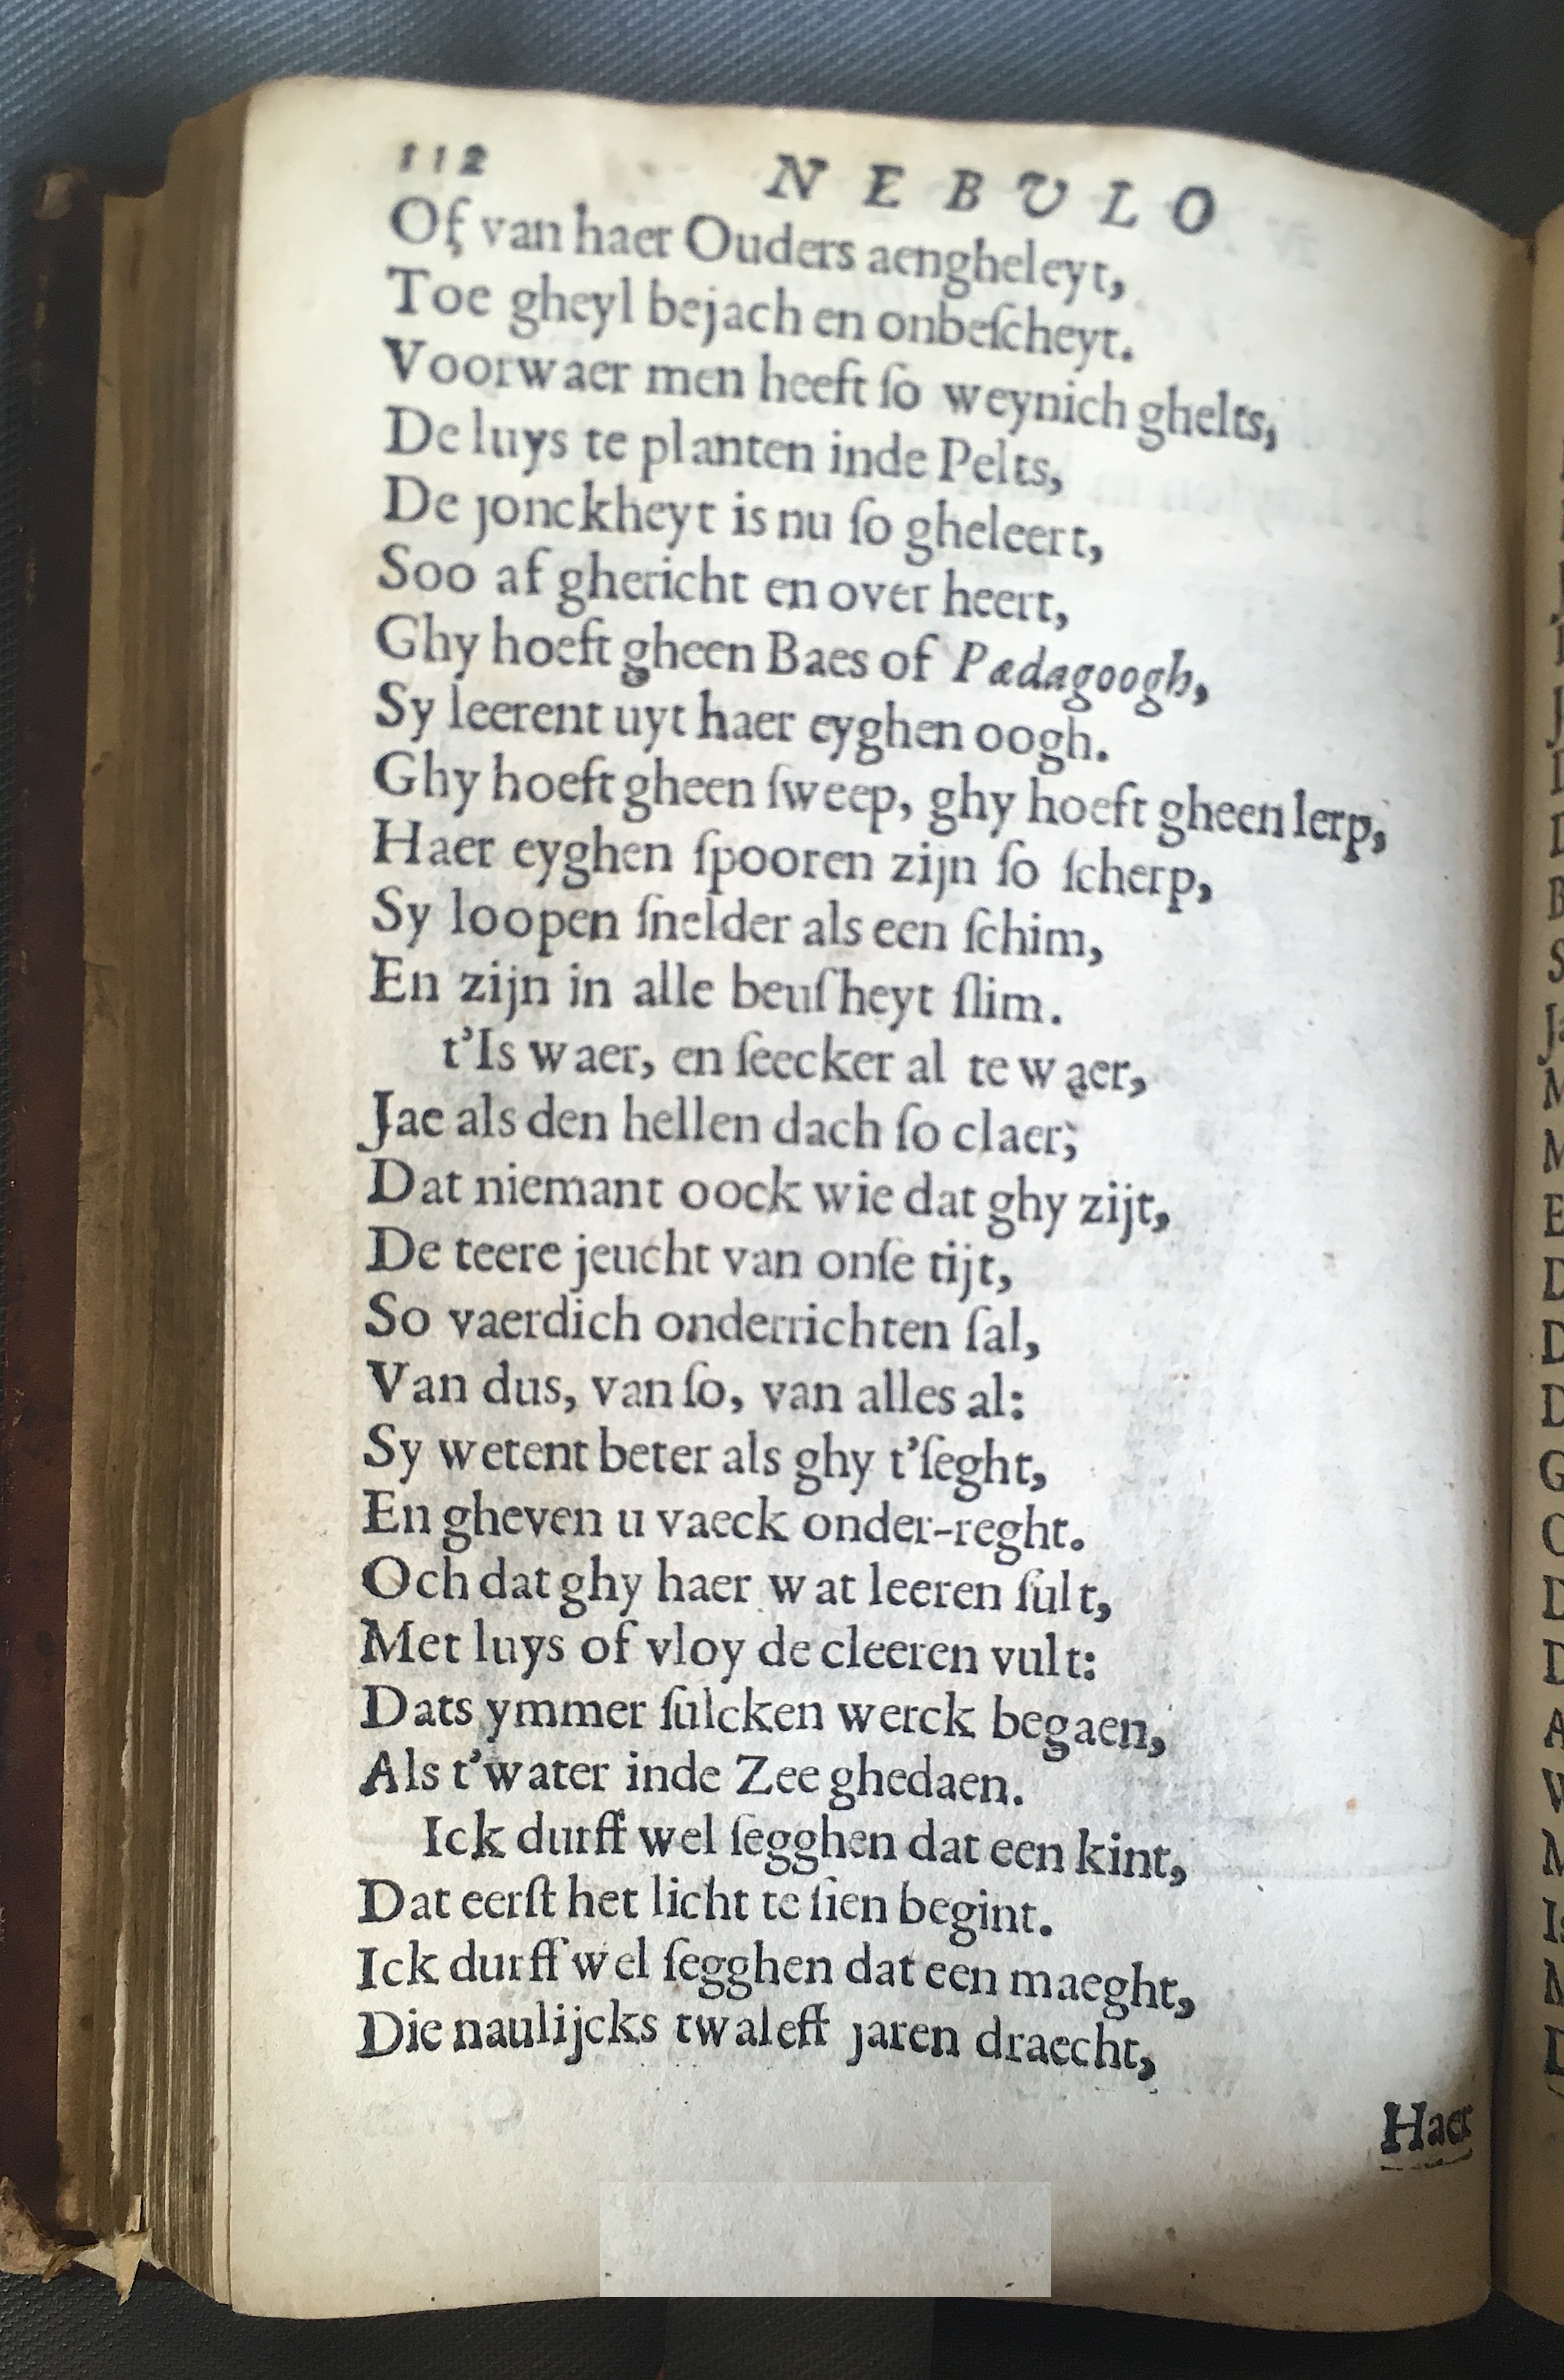 112 NEBULO
Of van haer Ouders aengheleyt,
Toe gheyl bejach en onbeſcheyt.
Voorwaer men heeft ſo weynich ghelts,
De luys te planten inde Pelts,
De jonckheyt is nu ſo gheleert,
Soo af ghericht en over heert,
Ghy hoeft gheen Baes of Pædagoogh,
Sy leerent uyt haer eyghen oogh.
Ghy hoeft gheen ſweep, ghy hoeft gheen lerp,
Haer eyghen ſpooren zijn ſo ſcherp,
Sy loopen ſnelder als een ſchim,
En zijn in alle beuſheyt ſlim.
t'Is waer, en ſeecker al te waer,
Jae als den hellen dach ſo claer;
Dat niemant oock wie dat ghy zijt,
De teere jeucht van onſe tijt,
So vaerdich onderrichten ſal,
Van dus, van ſo, van alles al:
Sy wetent beter als ghy t'ſeght,
En gheven u vaeck onder-reght.
Och dat ghy haer wat leeren ſult,
Met luys of vloy de cleeren vult:
Dats ymmer ſulcken werck begaen,
Als t'water inde Zee ghedaen.
Ick durff wel ſegghen dat een kint,
Dat eerſt het licht te ſien begint.
Ick durff wel ſegghen dat een maeght,
Die naulijcks twaleff jaren draecht,
Haer